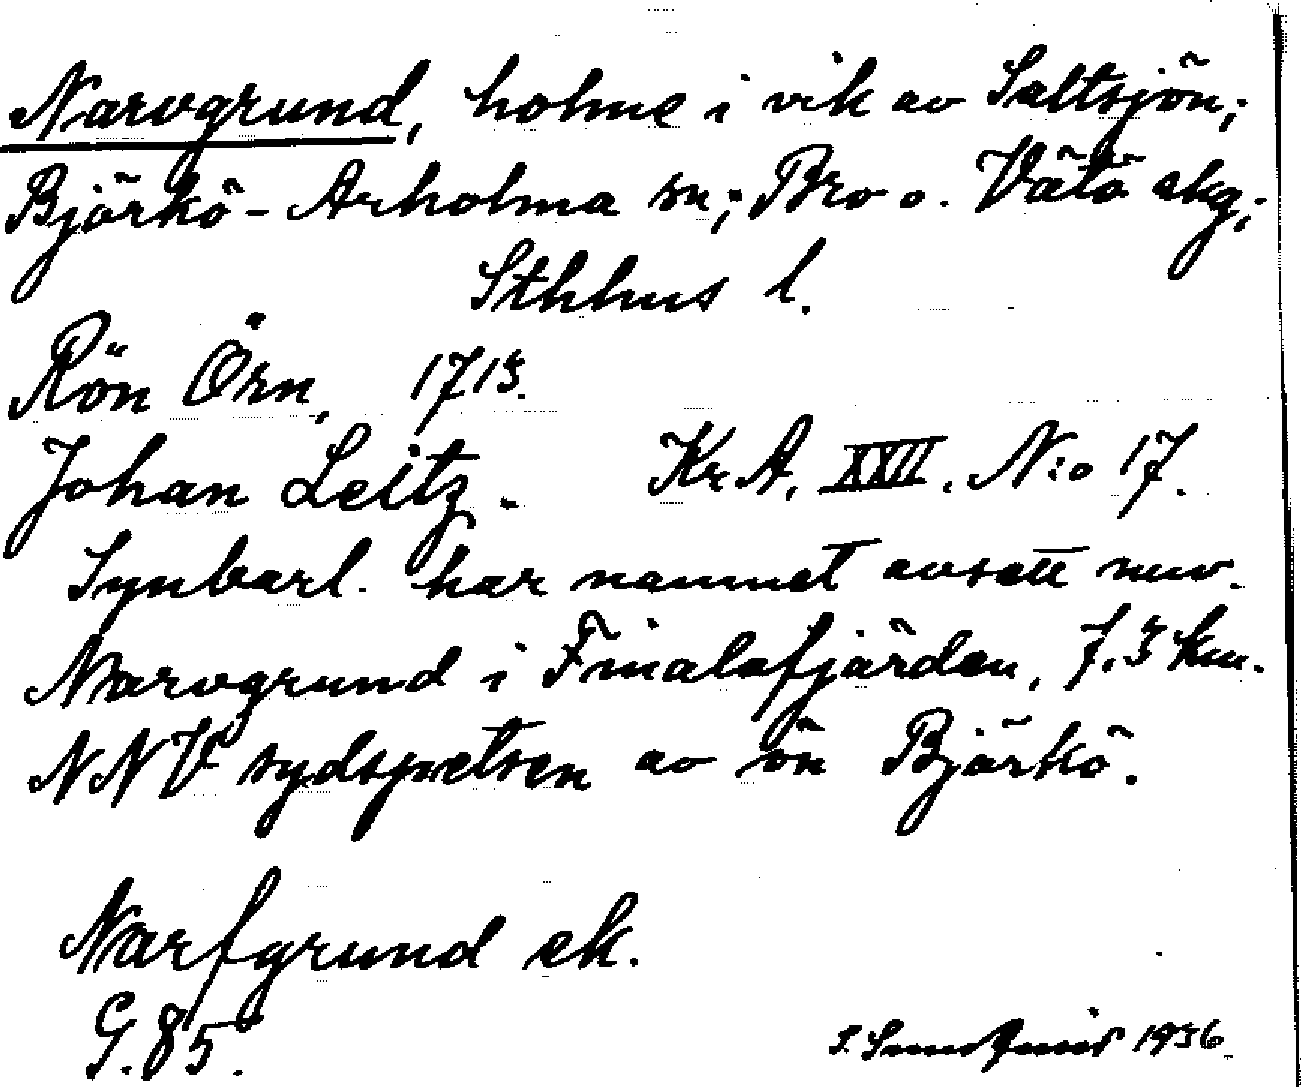 Narvgrund, holme i vik av Saltsjön;
Björkö-Arholma sn; Bro o. Vätö skg;
Sthlms l.
Rön Örn, 1713.
Johan Leitz. Kr.A. XXVII. N:o 17.
Synbarl. har namnet avsett nuv.
Narvgrund i Finalafjärden, 7.3 km.
NNV sydspetsen av ön Björkö.
Narfgrund ek.
G. 85.
1936